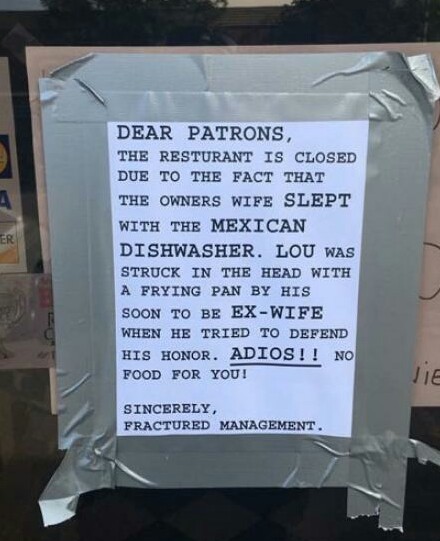 DEAR PATRONS,
THE RESTURANT IS CLOSED
DUE TO THE FACT THAT
THE OWNERS WIFE SLEPT
WITH THE MEXICAN
DISHWASHER. LOU WAS
STRUCK IN THE HEAD WITH
A FRYING PAN BY HIS
SOON TO BE EX-WIFE
WHEN HE TRIED TO DEFEND
HIS HONOR. ADIOS!! NO
FOOD FOR YOU!
SINCERELY,
FRACTURED MANAGEMENT.